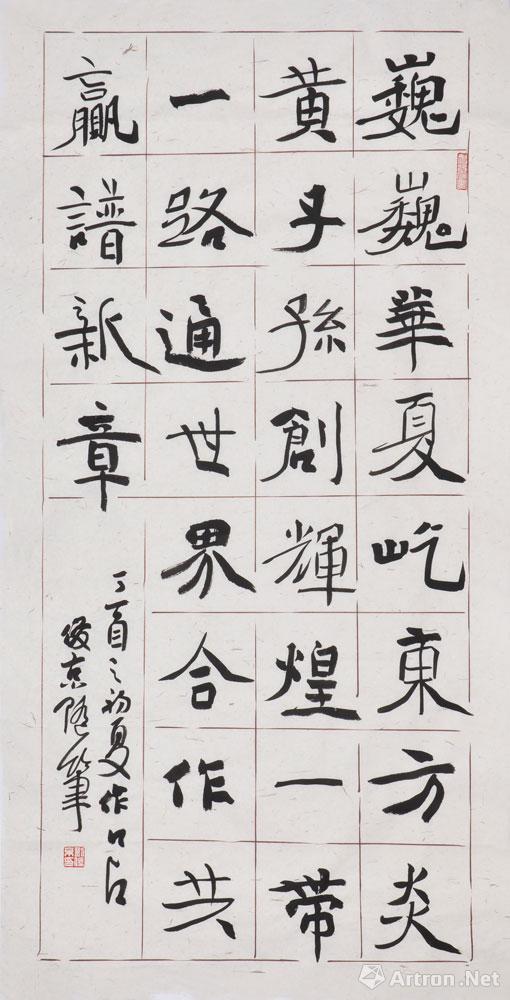 巍巍華夏屹東方炎
黄子孫創輝煌一帶
一路通世界合作共
贏譜新章
丁酉之初夏作口占
俊京隨筆
Artron.Net